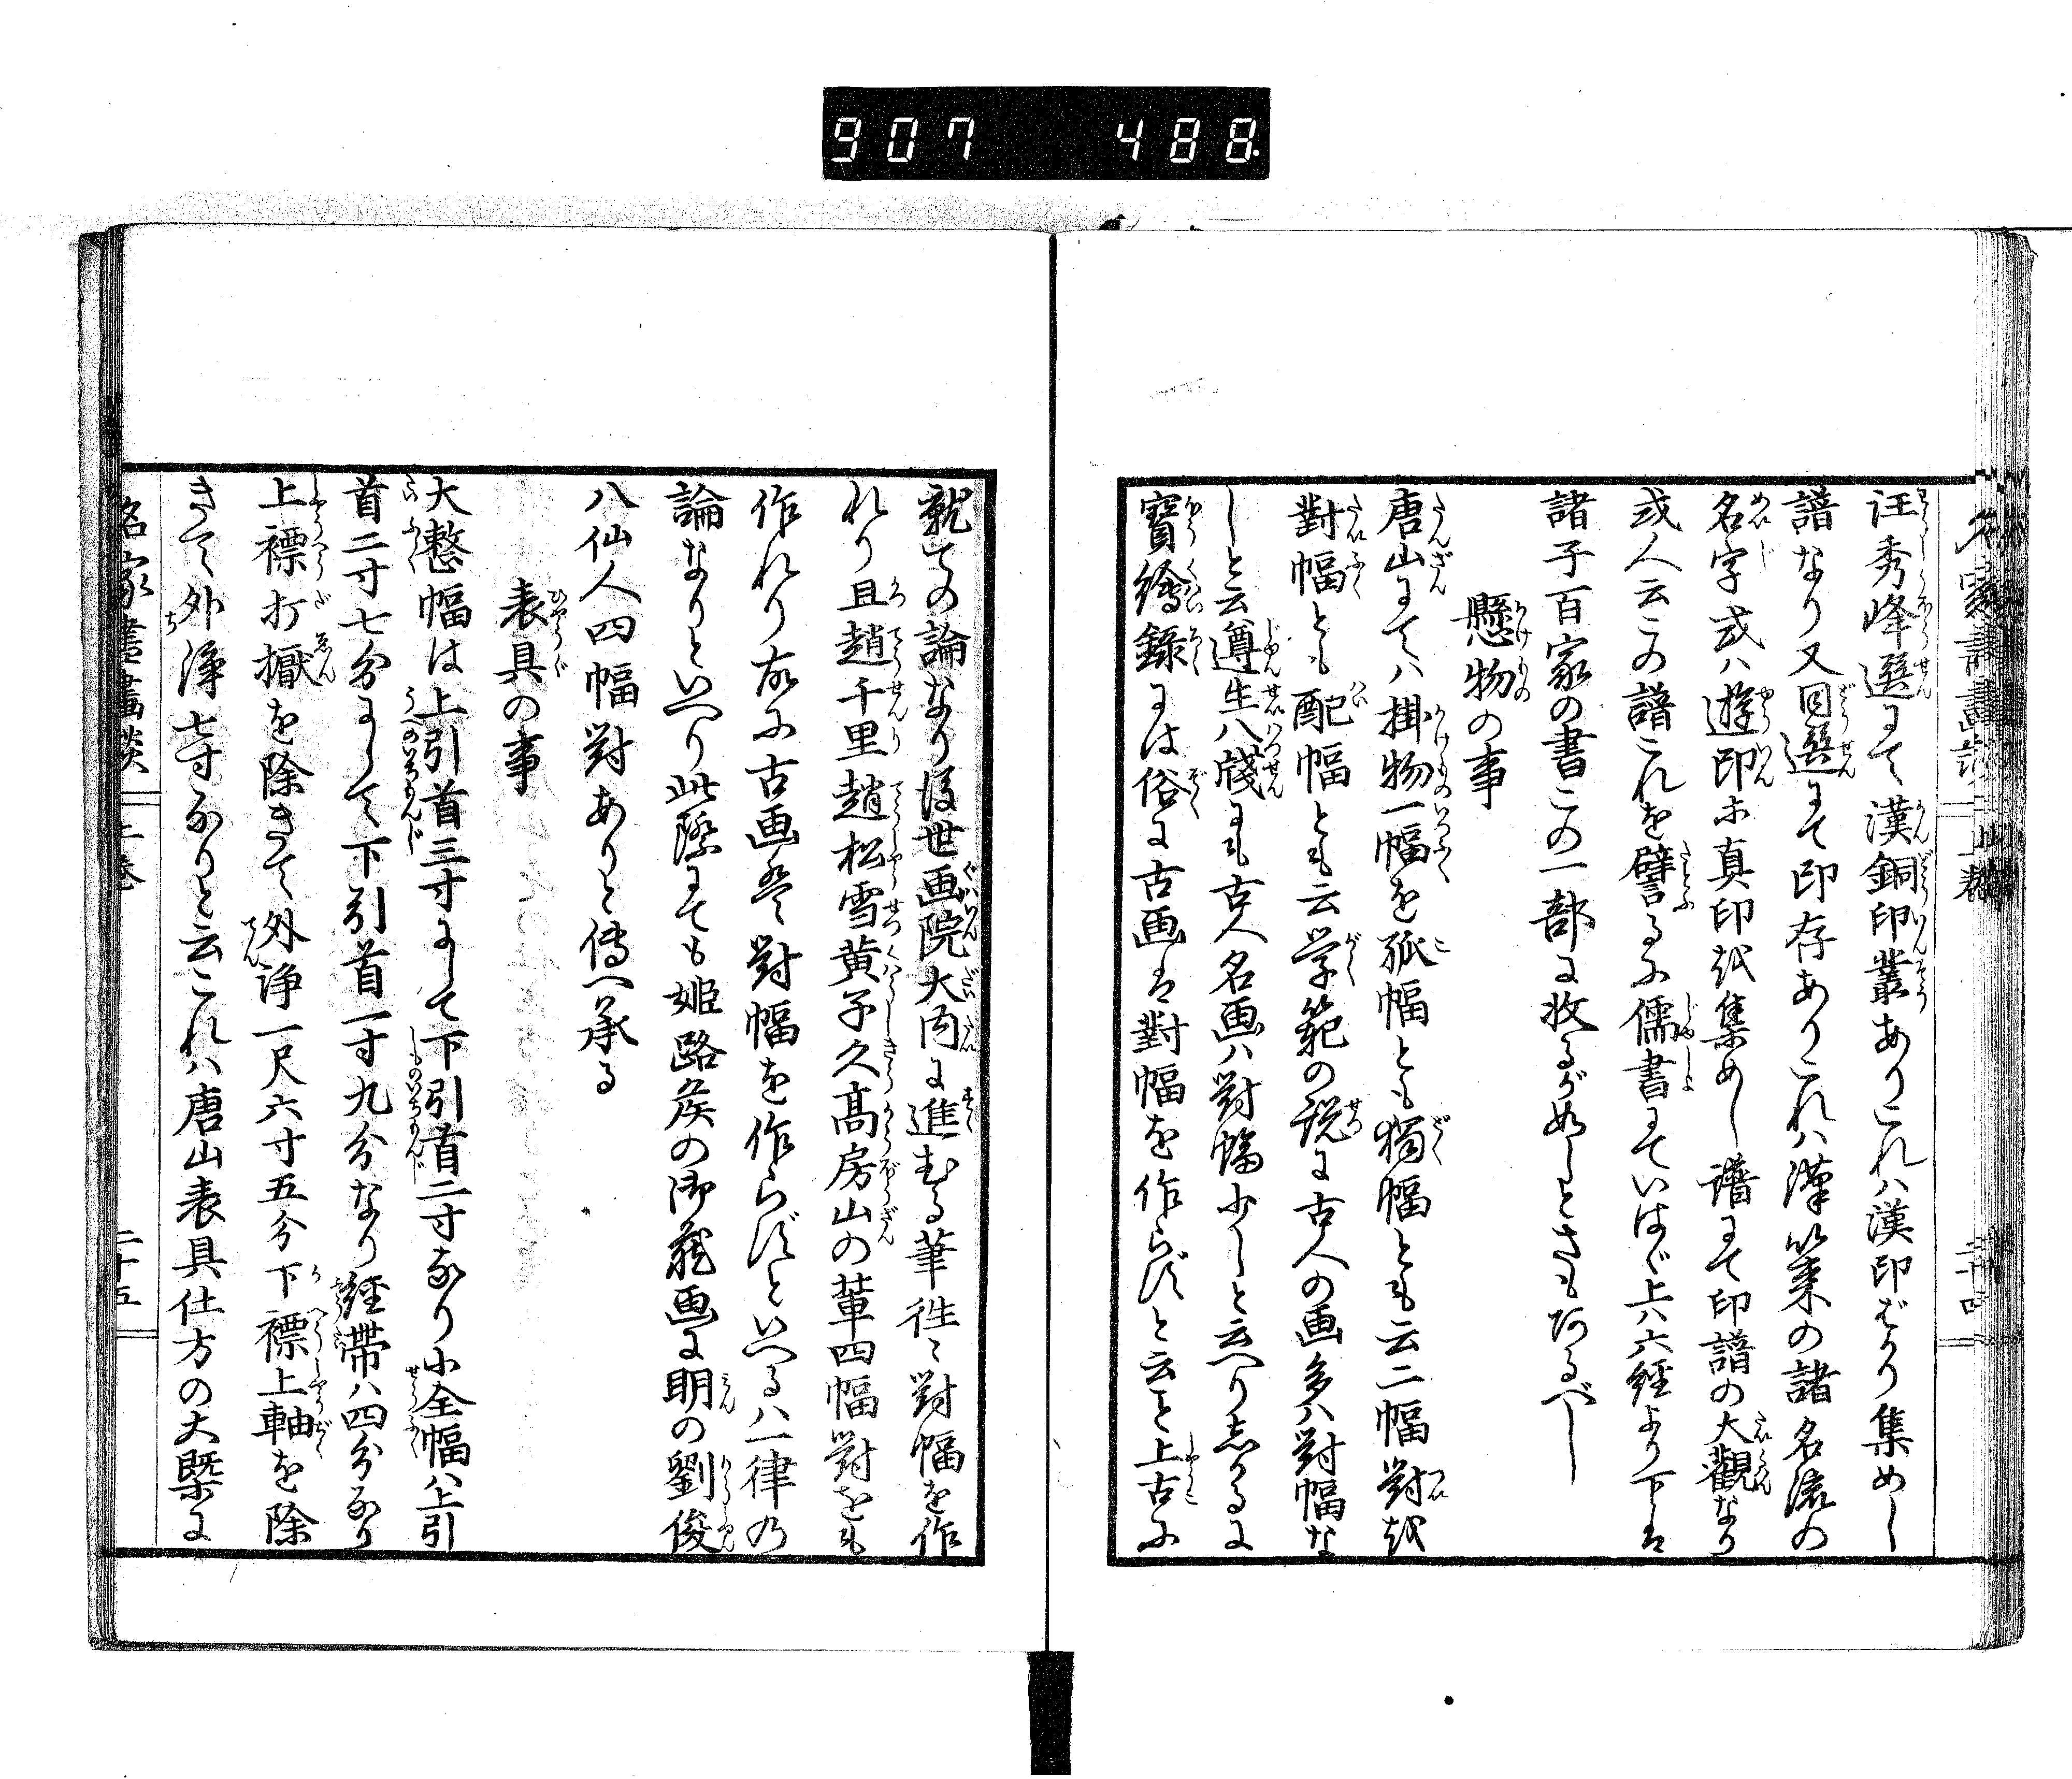 907 488
汪秀峰選にて漢銅印叢ありこれハ漢印ばかり集めし
譜なり又回選にて印存ありこれハ漢篆の諸名流の
名字或ハ遊印亦真印を集めし譜にて印譜の大觀なり
或人云この譜これを譬るに儒書にていはゞ上ハ六経より下は
諸子百家の書この一部に收るが如しとさも阿るべし
懸物の事
唐山にてハ掛物一幅を孤幅とも獨幅とも云二幅對を
對幅とも配幅とも云学範の説に古人の画多ハ對幅な
しと云遵生八牋にも古人名画ハ對幅少しと云へりしかるに
寶繪錄には俗に古画は對幅を作らずと云こと上古に
就ての論なり後世画院大内に進むる筆徃々對幅を作
れり且趙千里趙松雪黄子久髙房山の輩四幅對をも
作れり故に古画是對幅を作らずといへるハ一律乃
論なりといへり此際にても姫路侯の御藏画に明の劉俊
八仙人四幅對ありと傳へ承る
表具の事
大整幅は上引首三寸にして下引首二寸なり小全幅ハ上引
首二寸七分にして下引首一寸九分なり經帯ハ四分なり
上褾打擫を除きて外淨一尺六寸五分下褾上軸を除
きて外淨七寸なりと云これハ唐山表具仕方の大槩に
名家書畫談
二巻
二十五